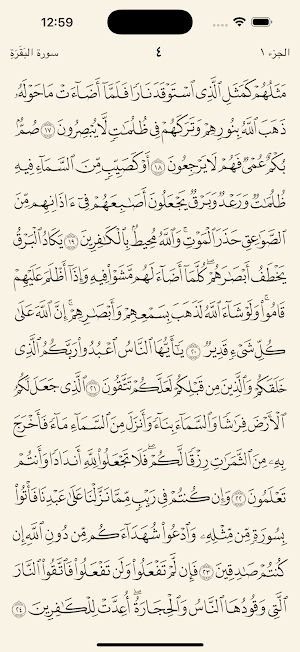 12:59
الجزء ١ ٤ سورة البَقَرَةِ
مَثَلُهُمۡ كَمَثَلِ ٱلَّذِي ٱسۡتَوۡقَدَ نَارٗا فَلَمَّآ أَضَآءَتۡ مَا حَوۡلَهُۥ
ذَهَبَ ٱللَّهُ بِنُورِهِمۡ وَتَرَكَهُمۡ فِي ظُلُمَٰتٖ لَّا يُبۡصِرُونَ ١٧ صُمُّۢ
بُكۡمٌ عُمۡيٞ فَهُمۡ لَا يَرۡجِعُونَ ١٨ أَوۡ كَصَيِّبٖ مِّنَ ٱلسَّمَآءِ فِيهِ
ظُلُمَٰتٞ وَرَعۡدٞ وَبَرۡقٞ يَجۡعَلُونَ أَصَٰبِعَهُمۡ فِيٓ ءَاذَانِهِم مِّنَ
ٱلصَّوَٰعِقِ حَذَرَ ٱلۡمَوۡتِۚ وَٱللَّهُ مُحِيطُۢ بِٱلۡكَٰفِرِينَ ١٩ يَكَادُ ٱلۡبَرۡقُ
يَخۡطَفُ أَبۡصَٰرَهُمۡۖ كُلَّمَآ أَضَآءَ لَهُم مَّشَوۡاْ فِيهِ وَإِذَآ أَظۡلَمَ عَلَيۡهِمۡ
قَامُواْۚ وَلَوۡ شَآءَ ٱللَّهُ لَذَهَبَ بِسَمۡعِهِمۡ وَأَبۡصَٰرِهِمۡۚ إِنَّ ٱللَّهَ عَلَىٰ
كُلِّ شَيۡءٖ قَدِيرٞ ٢٠ يَٰٓأَيُّهَا ٱلنَّاسُ ٱعۡبُدُواْ رَبَّكُمُ ٱلَّذِي
خَلَقَكُمۡ وَٱلَّذِينَ مِن قَبۡلِكُمۡ لَعَلَّكُمۡ تَتَّقُونَ ٢١ ٱلَّذِي جَعَلَ لَكُمُ
ٱلۡأَرۡضَ فِرَٰشٗا وَٱلسَّمَآءَ بِنَآءٗ وَأَنزَلَ مِنَ ٱلسَّمَآءِ مَآءٗ فَأَخۡرَجَ
بِهِۦ مِنَ ٱلثَّمَرَٰتِ رِزۡقٗا لَّكُمۡۖ فَلَا تَجۡعَلُواْ لِلَّهِ أَندَادٗا وَأَنتُمۡ
تَعۡلَمُونَ ٢٢ وَإِن كُنتُمۡ فِي رَيۡبٖ مِّمَّا نَزَّلۡنَا عَلَىٰ عَبۡدِنَا فَأۡتُواْ
بِسُورَةٖ مِّن مِّثۡلِهِۦ وَٱدۡعُواْ شُهَدَآءَكُم مِّن دُونِ ٱللَّهِ إِن
كُنتُمۡ صَٰدِقِينَ ٢٣ فَإِن لَّمۡ تَفۡعَلُواْ وَلَن تَفۡعَلُواْ فَٱتَّقُواْ ٱلنَّارَ
ٱلَّتِي وَقُودُهَا ٱلنَّاسُ وَٱلۡحِجَارَةُۖ أُعِدَّتۡ لِلۡكَٰفِرِينَ ٢٤